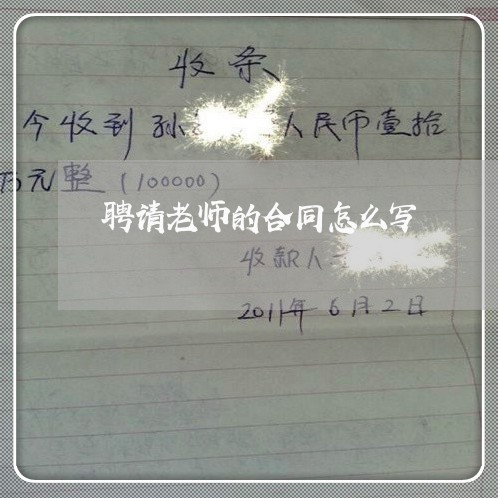 收条
今收到孙 人民币壹拾
万元整(100000)
聘请老师的合同怎么写
收款人
2011年6月2日